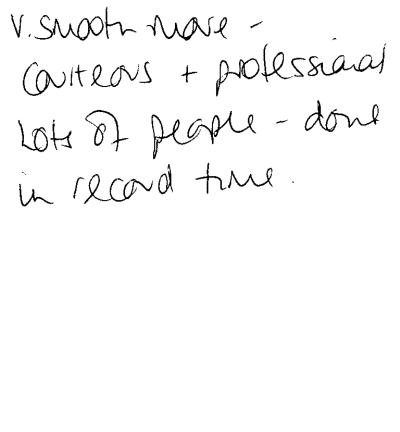 V. smooth move -
Courteous + professional
Lots of people - done
in record time.